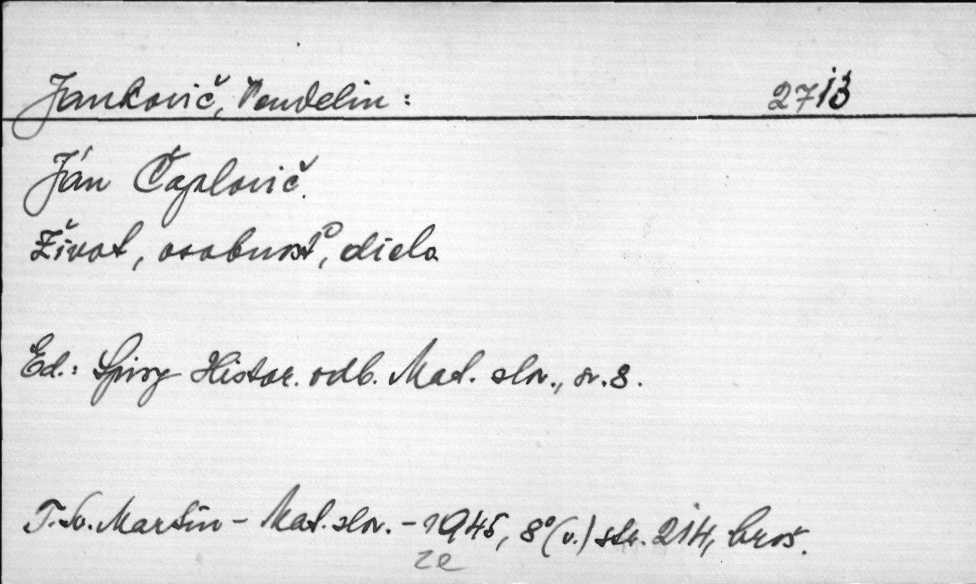 Jankovič, Vendelin: 2713
Ján Čaplovič.
Život, osobnosť, dielo
Ed.: Spisy Histor. odb. Mat. slov., sv. 8.
T. Sv. Martin - Mat. slov. - 1945, 8° (v.) str. 214, broš.
ze